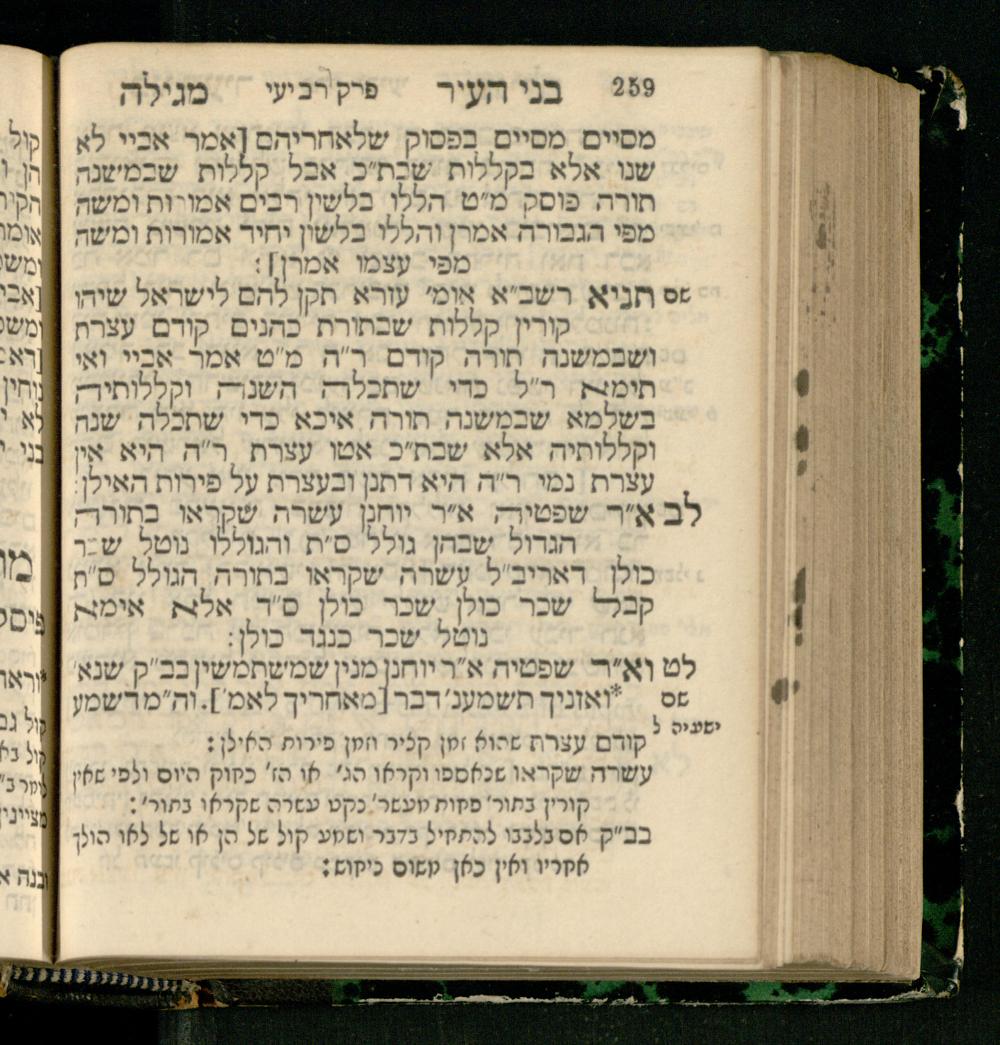 259 בני העיר פרק רביעי מגילה
מסיים מסיים בפסוק שלאחריהם [אמר אביי לא
שנו אלא בקללות שבת״כ אבל קללות שבמשנה
תורה פוסק מ״ט הללו בלשין רבים אמורות ומשה
מפי הגבורה אמרן והללי בלשון יחיד אמורות ומשה
מפי עצמו אמרן]:
שם תניא רשב״א אומ׳ עזרא תקן להם לישראל שיהו
קורין קללות שבתורת כהנים קודם עצרת
ושבמשנה תורה קודם ר״ה מ״ט אמר אביי ואי
תימא ר״ל כדי שתכלה השנה וקללותיה
בשלמא שבמשנה תורה איכא כדי שתכלה שנה
וקללותיה אלא שבת״כ אטו עצרת ר״ה היא אין
עצרת נמי ר״ה היא דתנן ובעצרת על פירות האילן:
לב א״ר שפטיה א״ר יוחנן עשרה שקראו בתורה
הגדול שבהן גולל ס״ת והגוללו נוטל שכר
כולן דאריב״ל עשרה שקראו בתורה הגולל ס״ת
קבל שכר כולן שכר כולן ס״ד אלא אימא
נוטל שכר כנגד כולן:
לט וא״ר שפטיה א״ר יוחנן מנין שמשתמשין בב״ק שנא׳
שם *ואזניך תשמענ׳ דבר [מאחריך לאמ׳]. וה״מ דשמע
ישעיה ל
קודם עצרת שהוא זמן קציר וזמן פירות האילן:
עשרה שקראו שנאספו וקראו הג׳ או הז׳ כחוק היום ולפי שאין
קורין בתור׳ פחות מעשר׳ נקט עשרה שקראו בתור׳:
בב״ק אם בלבבו להתחיל בדבר ושמע קול של הן או של לאו הולך
אחריו ואין כאן משום ניחוש: